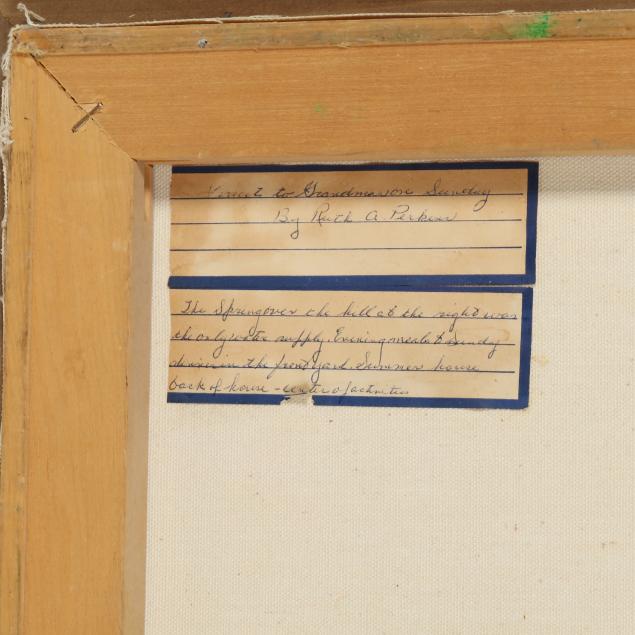 Visit to Grandma's on Sunday
By Ruth A. Perkins
The Spring over the hill at the right was
the only water supply. Evening meals & Sunday
dinner in the front yard. Summer house
back of house - center of activities